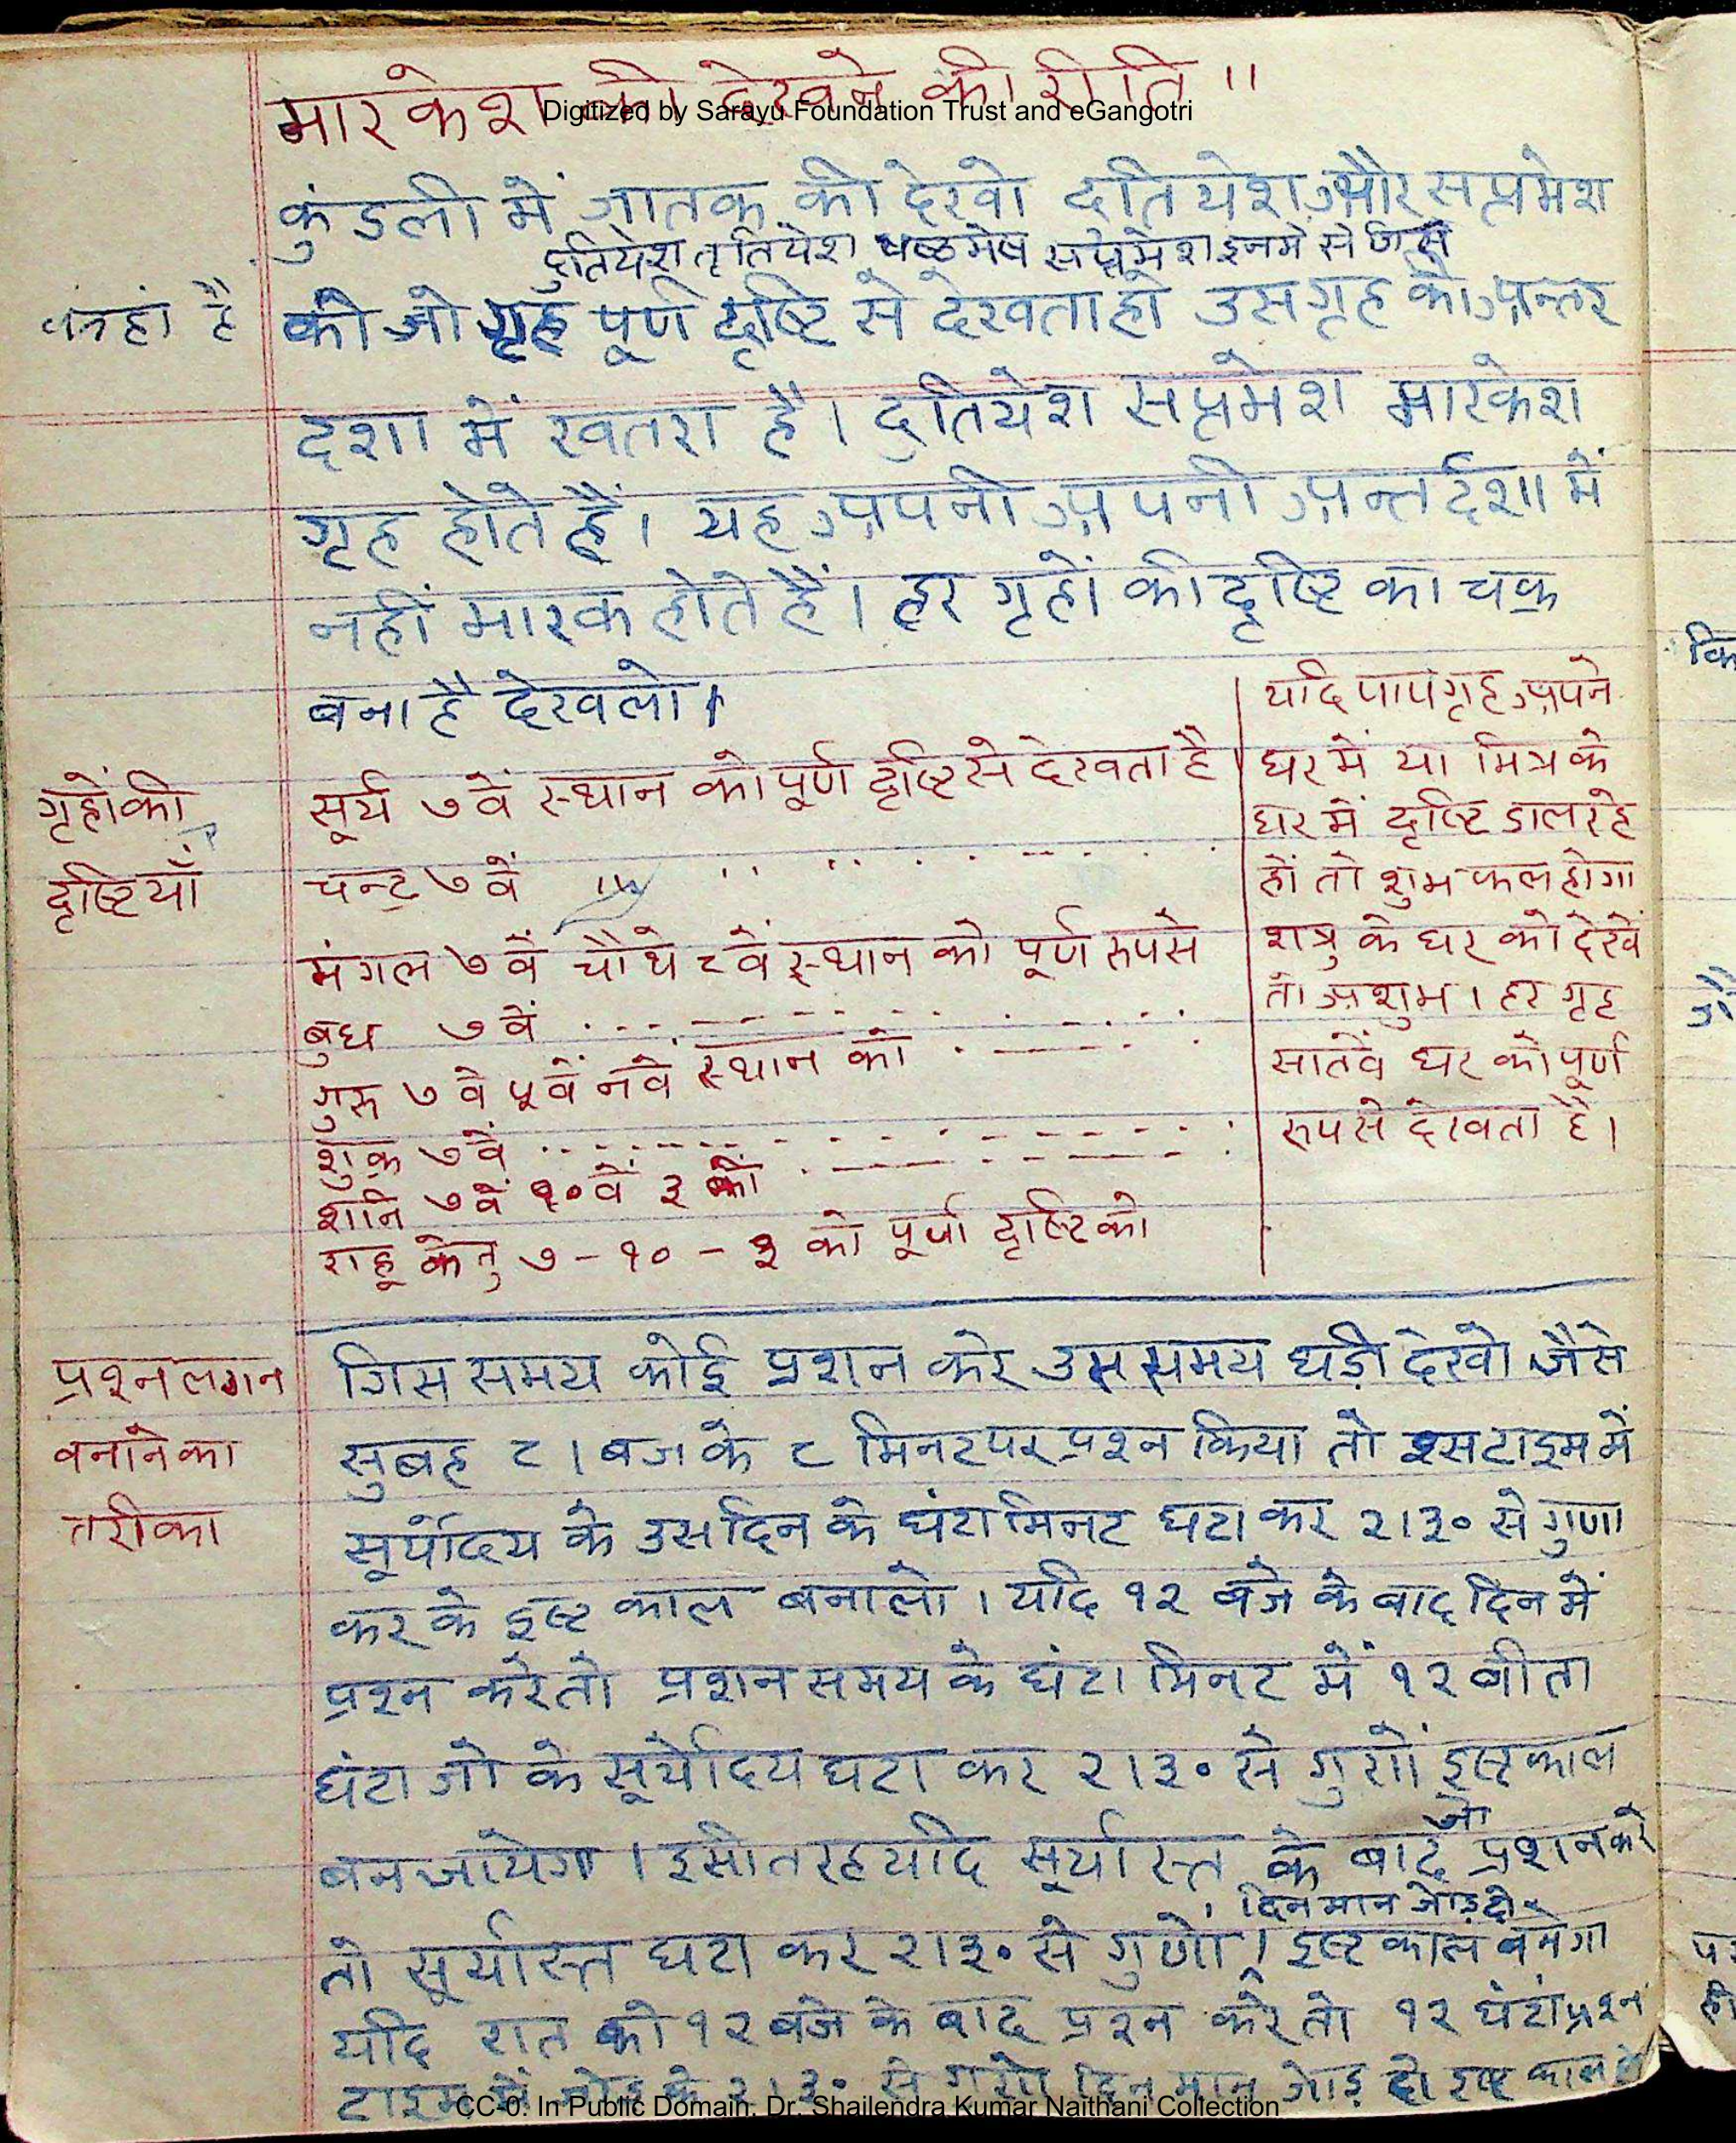 मारकेश को देखने की रीति ॥
Digitized by Sarayu Foundation Trust and eGangotri
कुंडली में जातक की देखो दतियेश और सप्तमेश
दुतियेश तृतियेश षष्ठमेष सप्तमेश इनमें से जिस
को जो गृह पूर्ण दृष्टि से देखता हो उस गृह की अन्तर
दशा में खतरा है। दुतियेश सप्तमेश मारकेश
गृह होते हैं। यह अपनी अपनी अन्तर्दशा में
नहीं मारक होते हैं। हर गृहों की दृष्टि का चक्र
बना है देखलो।
गृहों की
दृष्टियाँ
सूर्य ७ वें स्थान को पूर्ण दृष्टि से देखता है
चन्द्र ७ वें
मंगल ७ वें चौथे ८ वें स्थान को पूर्ण रुपसे
बुध ७ वें
गुरु ७ वे ५ वें नवे स्थान को
शुक्र ७ वें
शनि ७ वें १० वें ३ को
राहू केतु ७ - १० - ३ को पूर्ण दृष्टि को
यदि पाप गृह अपने
घर में या मित्र के
घर में दृष्टि डाल रहे
हों तो शुभ फल होगा
शत्रु के घर को देखें
तो अशुभ। हर गृह
सातवें घर को पूर्ण
रुप से देखता है।
प्रश्न लगन
बनाने का
तरीका
जिस समय कोई प्रशन करे उस समय घड़ी देखो जैसे
सुबह ८। बज के ८ मिनट पर प्रश्न किया तो इस टाइम में
सूर्योदय के उस दिन के घंटा मिनट घटा कर २।३० से गुणा
कर के इष्ट काल बनालो। यदि १२ बजे के बाद दिन में
प्रश्न करे तो प्रशन समय के घंटा मिनट में १२ बीता
घंटा जो के सूर्योदय घटा कर २।३० से गुणों इष्ट काल
बन जायेगा। इसी तरह यदि सूर्यास्त के बाद जो प्रशन करे
तो सूर्यास्त घटा कर २।३० से गुणो। दिनमान जोड़ दो इष्ट काल बनेगा
यदि रात को १२ बजे के बाद प्रश्न करे तो १२ घंटा प्रश्न
टाइम में जोड़ के २।३० से गुणो दिन मान जोड़ दो इष्ट काल
CC-0. In Public Domain. Dr. Shailendra Kumar Naithani Collection